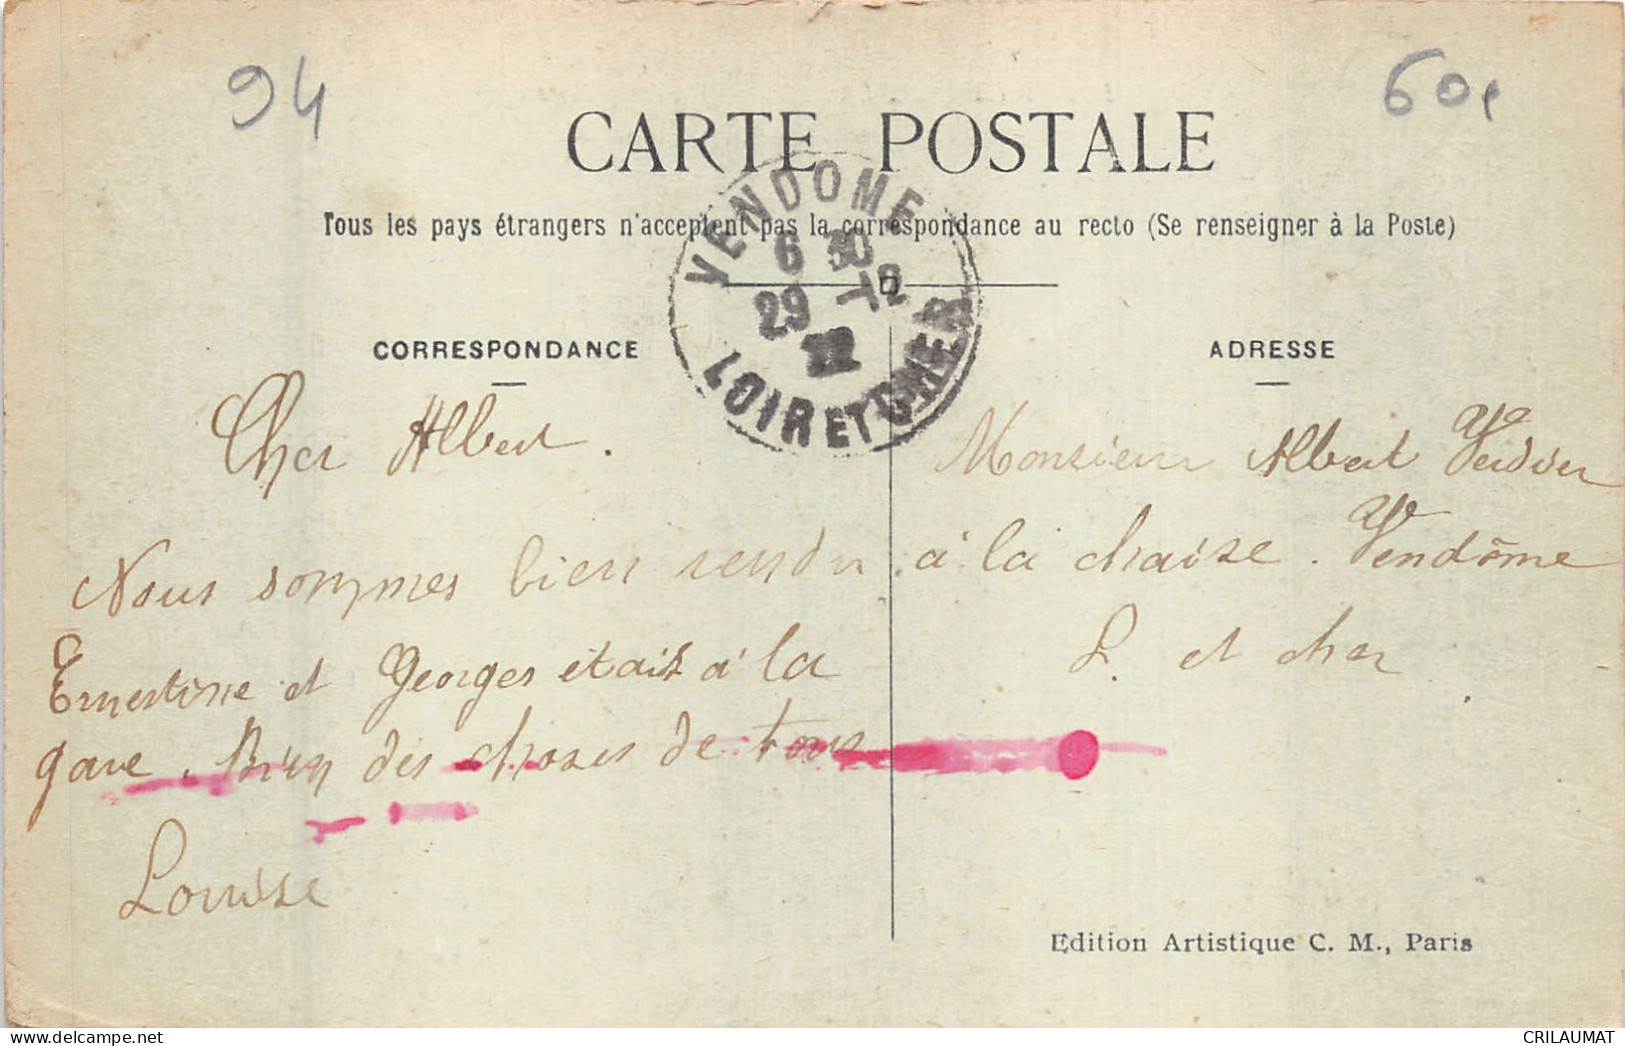 94
60
CARTE POSTALE
Tous les pays étrangers n'acceptent pas la correspondance au recto (Se renseigner à la Poste)
VENDOME
6 30
29 -12
22
LOIR ET CHER
CORRESPONDANCE
Cher Albert.
Nous sommes bien rendu
Ernestine et Georges était à la
gare. Bien des choses de tous
Louise
ADRESSE
Monsieur Albert Verdier
à la chaise. Vendôme
L. et cher
Edition Artistique C. M., Paris
delcampe.net
CRILAUMAT